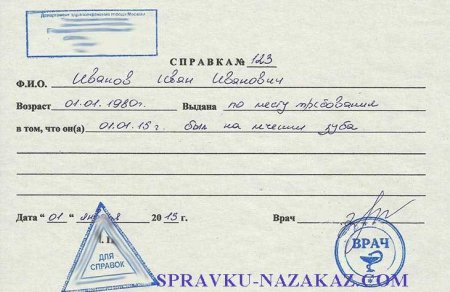 Департамент здравоохранения города Москвы
СПРАВКА № 123
Ф.И.О. Иванов Иван Иванович
Возраст 01.01.1980г. Выдана по месту требования
в том, что он(а) 01.01.15г. был на лечении зуба
Дата "01" января 2015 г. Врач
М. П.
ДЛЯ
СПРАВОК
ВРАЧ
SPRAVKU-NAZAKAZ.COM